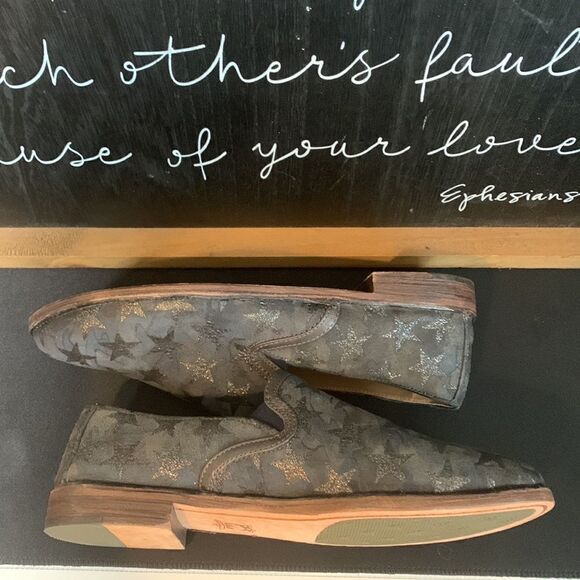 ch other's faul
ause of your love
Ephesians